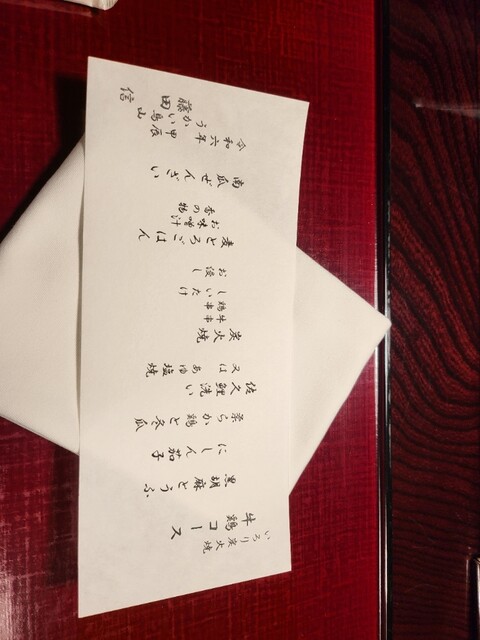 いろり炭火焼
牛鶏コース
黒胡麻とうふ
にしん茄子
柔らか鶏と冬瓜
佐久鯉洗い
又はあゆ塩焼
炭火焼
牛串
鶏串
しいたけ
お浸し
麦とろごはん
お味噌汁
香の物
南瓜ぜんざい
令和六年甲辰
うかい鳥山
藤田信